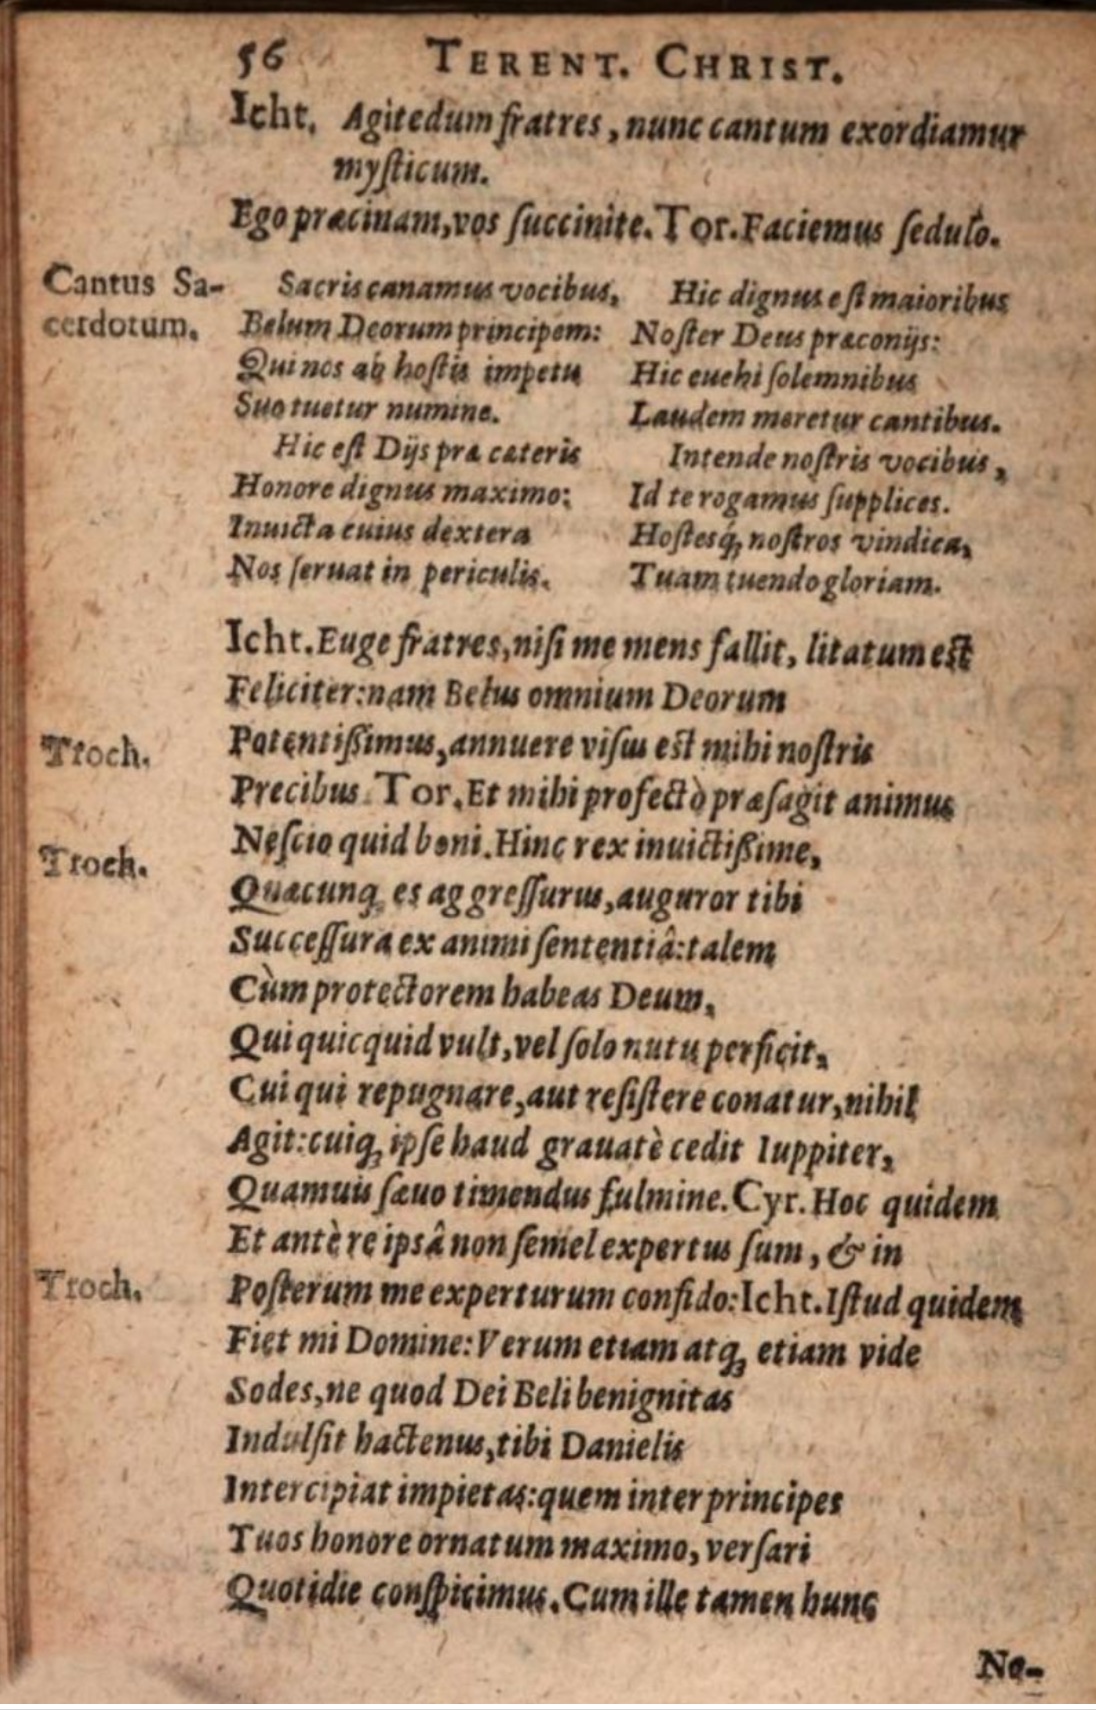 56 TERENT. CHRIST.
Icht. Agitedum fratres, nunc cantum exordiamur
myſticum.
Ego præcinam, vos ſuccinite. Tor. Faciemus ſedulo.
Cantus Sa-
cerdotum.
Sacris canamus vocibus,
Belum Deorum principem:
Qui nos ab hoſtis impetu
Suo tuetur numine.
Hic eſt Dijs præ cæteris
Honore dignus maximo:
Inuicta cuius dextera
Nos ſeruat in periculis.
Hic dignus eſt maioribus
Noſter Deus præconijs:
Hic euehi ſolemnibus
Laudem meretur cantibus.
Intende noſtris vocibus,
Id te rogamus ſupplices.
Hoſtesq́; noſtros vindica,
Tuam tuendo gloriam.
Icht. Euge fratres, niſi me mens fallit, litatum eſt
Feliciter: nam Belus omnium Deorum
Troch. Potentißimus, annuere viſus eſt mihi noſtris
Precibus. Tor. Et mihi profectò præſagit animus
Troch. Neſcio quid boni. Hinc rex inuictißime,
Quæcunq; es aggreſſurus, auguror tibi
Succeſſura ex animi ſententiâ: talem
Cùm protectorem habeas Deum,
Qui quicquid vult, vel ſolo nutu perficit,
Cui qui repugnare, aut reſiſtere conatur, nihil
Agit: cuiq; ipſe haud grauatè cedit Iuppiter,
Quamuis ſæuo timendus fulmine. Cyr. Hoc quidem
Et antè re ipsâ non ſemel expertus ſum, & in
Troch. Poſterum me experturum confido: Icht. Iſtud quidem
Fiet mi Domine: Verum etiam atq; etiam vide
Sodes, ne quod Dei Beli benignitas
Indulſit hactenus, tibi Danielis
Intercipiat impietas: quem inter principes
Tuos honore ornatum maximo, verſari
Quotidie conſpicimus. Cum ille tamen hunc
No-